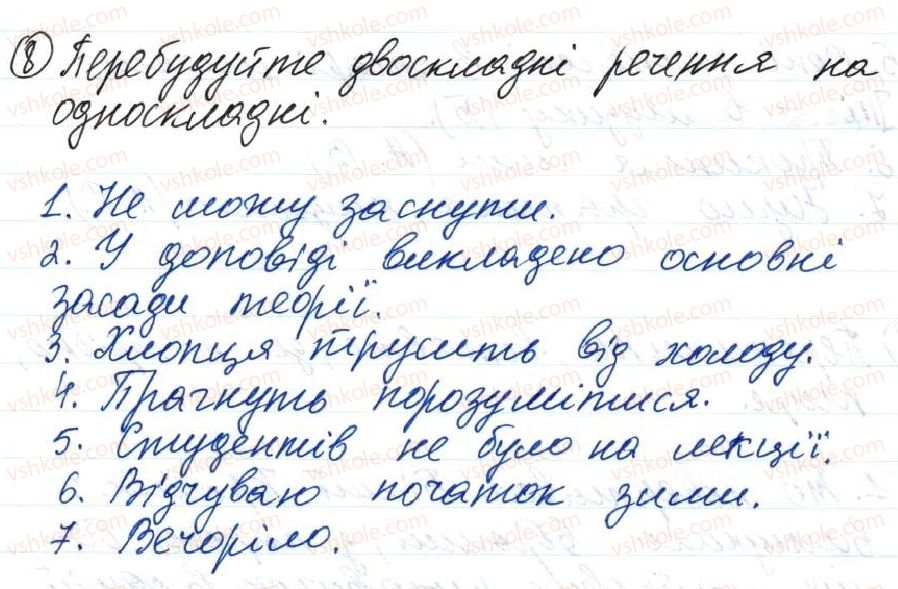 ⑧ Перебудуйте двоскладні речення на
односкладні.
1. Не можу заснути.
2. У доповіді викладено основні
засади теорії.
3. Хлопця трусить від холоду.
4. Прагнуть порозумітися.
5. Студентів не було на лекції.
6. Відчуваю початок зими.
7. Вечоріло.
vshkole.com